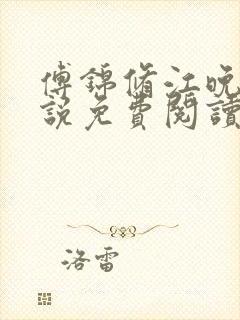 傅錦脩江晚
說免費閱讀
洛雷